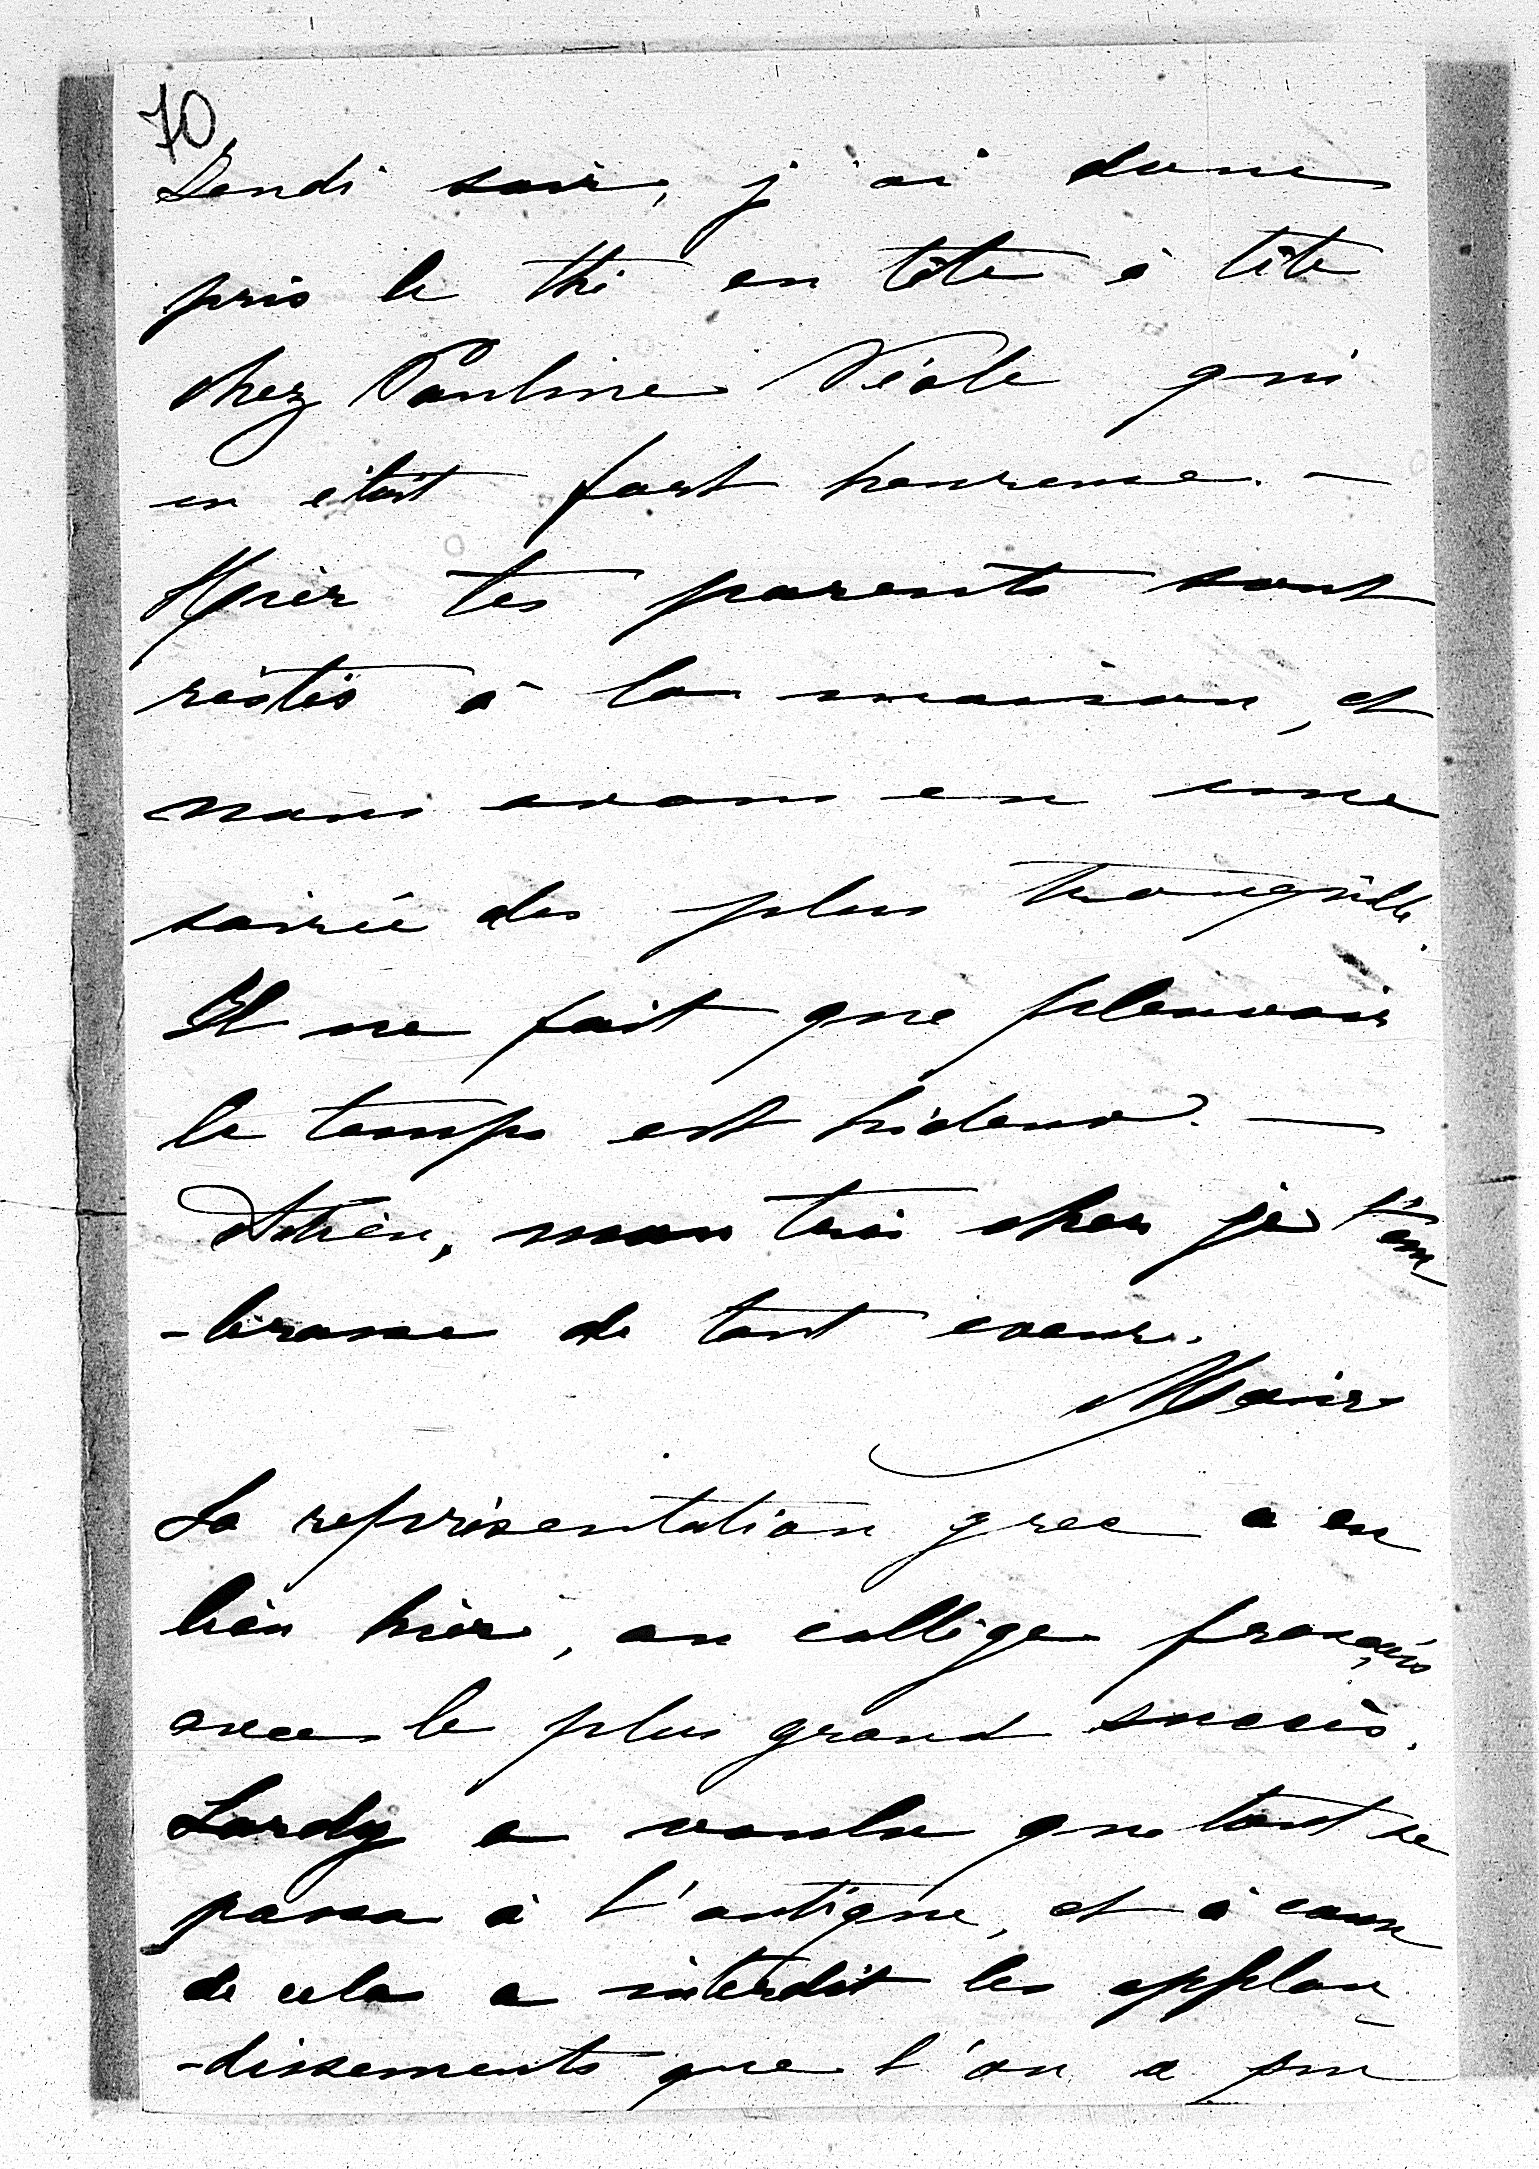 70
Lundi soir, j'ai donc
pris le thé en tête à tête
chez Pauline Viale qui
en était fort heureuse. —
Hier tes parents sont
restés à la maison, et
nous avons eu une
soirée des plus tranquille.
Il ne fait que pleuvoir
le temps est hideux. —
Adieu, mon très cher je t'em
-brasse de tout coeur.
La représentation grec a eu
lieu hier, au collège français
avec le plus grand succès.
Lardy a voulu que tout se
passa à l'antique, et à cause
de cela a interdit les applau-
-dissements que l'on a pu